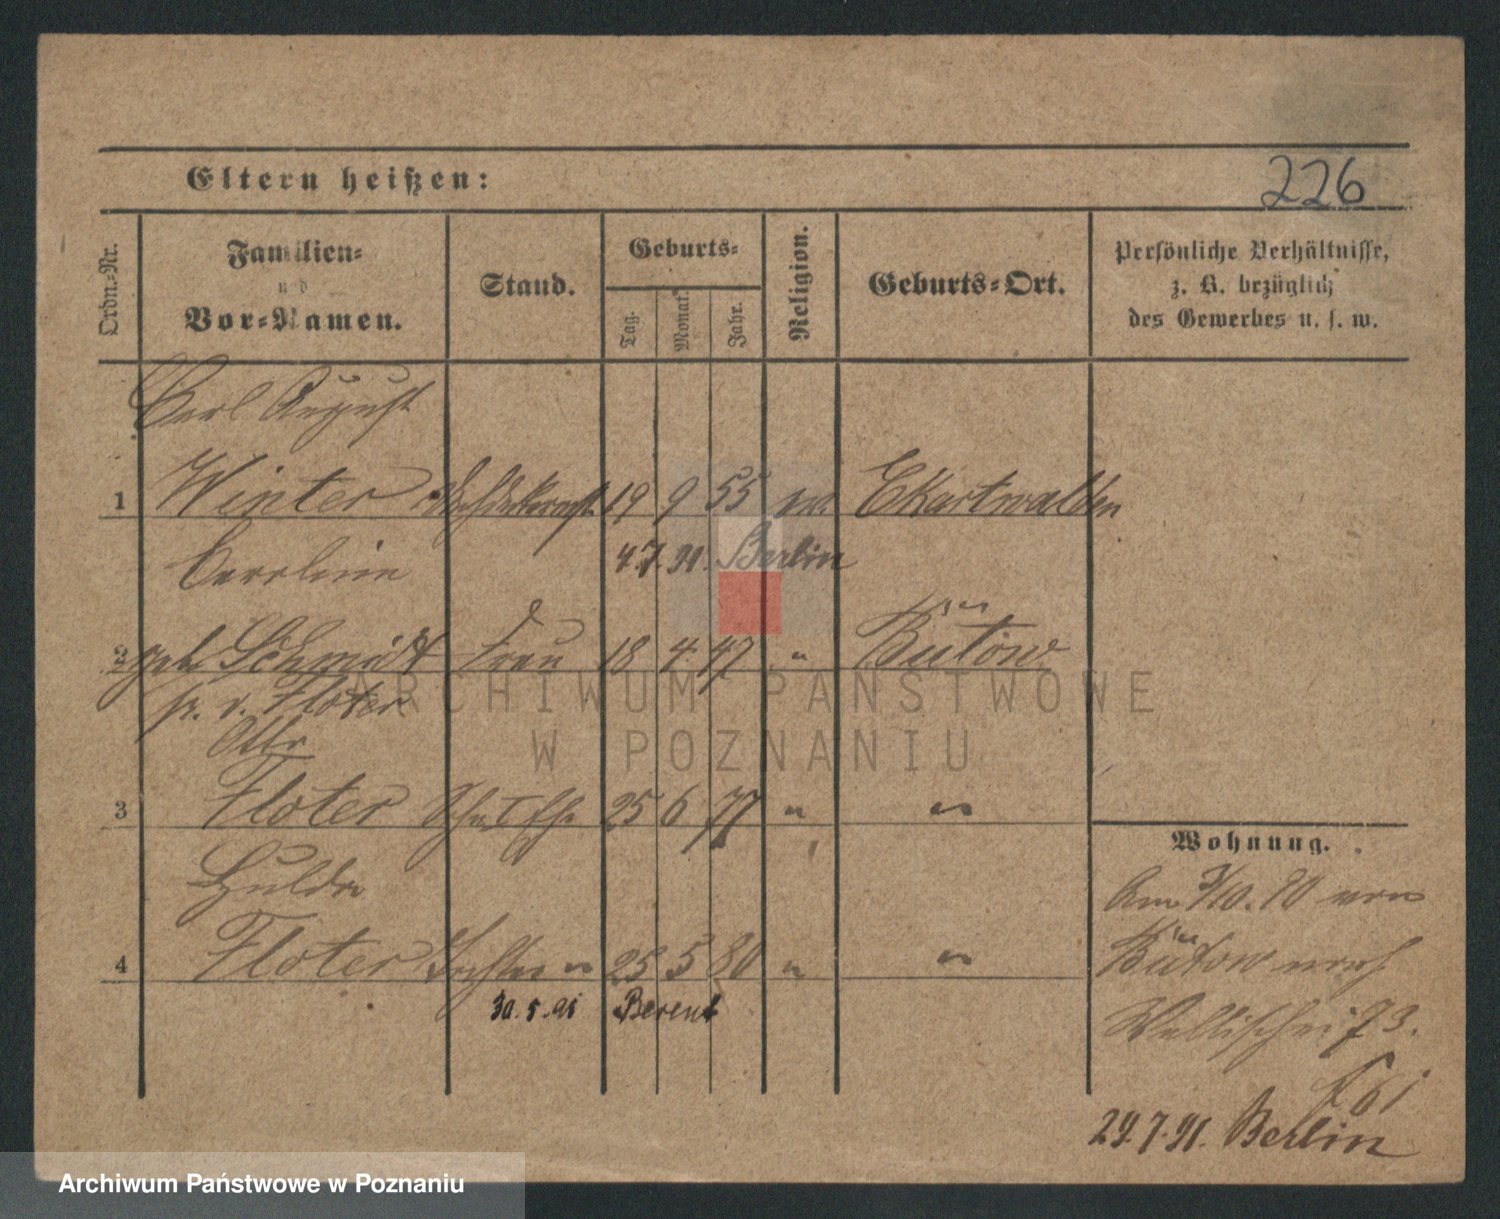 Eltern heißen:
226
Ordn.-Nr.
Familien-
und
Vor-Namen.
Stand.
Geburts-
Tag.
Monat.
Jahr.
Religion.
Geburts-Ort.
Persönliche Verhältnisse,
z. B. bezüglich
des Gewerbes u. s. w.
Carl August
1 Winter 19 9 55 ev. Eckartwalden
Caroline 4.7.91. Berlin
2 geb. Schmidt Frau 18 4 47 " Bütow
fr. v. Floter
Otto
3 Floter 25 6 77 " "
Hulda
4 Floter Tochter " 25 5 80 " "
30.5.91 Berent
Wohnung.
Am 3/10. 90 von
Bütow nach
Wallischei 73.
29.7.91. Berlin
ARCHIWUM PAŃSTWOWE
W POZNANIU
Archiwum Państwowe w Poznaniu